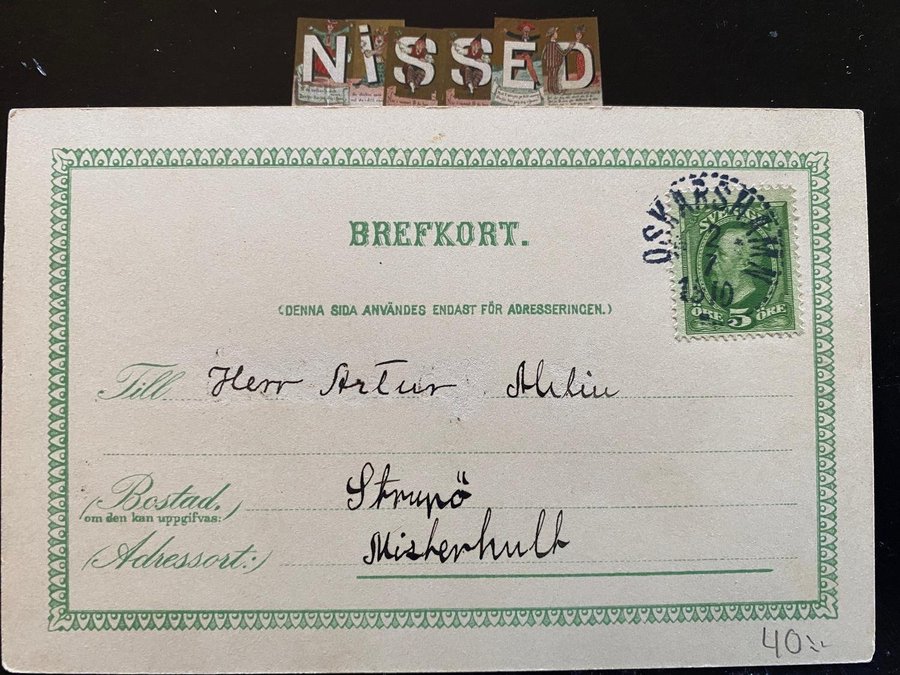 NiSSED
BREFKORT.
(DENNA SIDA ANVÄNDES ENDAST FÖR ADRESSERINGEN.)
OSKARSHAMN
2
7
1910
SVERIGE
ÖRE 5 ÖRE
Till Herr Artur Ahlin
Bostad.
(om den kan uppgifvas:)
Strupö
Adressort:)
Misterhult
40:-